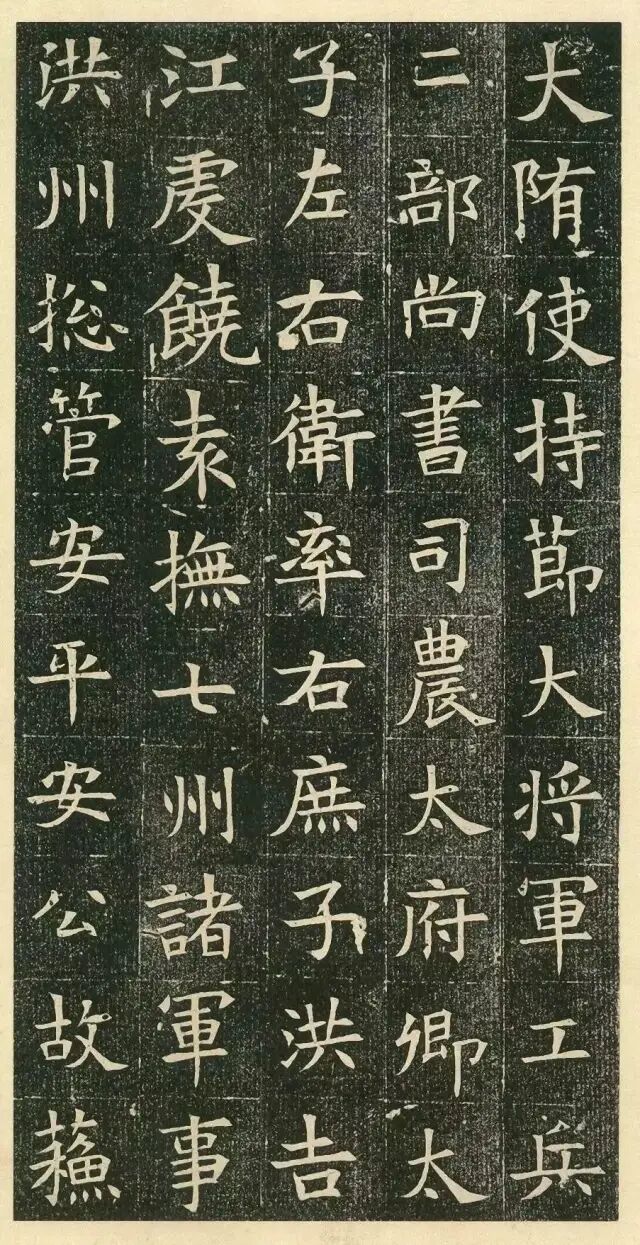 大隋使持節大将軍工兵
二部尚書司農太府卿太
子左右衛率右庶子洪吉
江虔饒袁撫七州諸軍事
洪州捴管安平安公故蘓